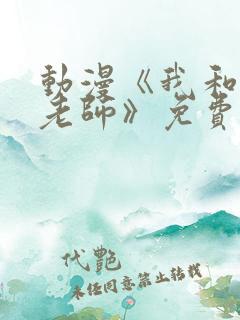 動漫《我和
老師》免費
代艷
未经同意禁止转载